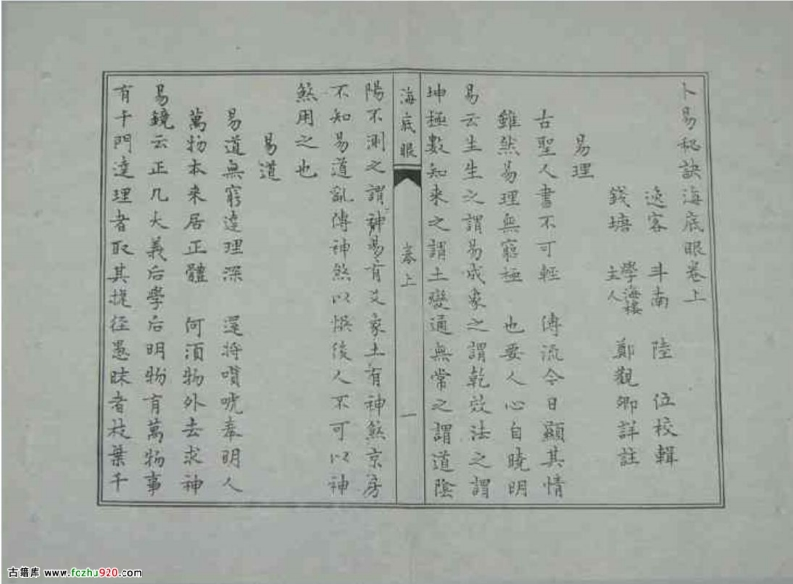 卜易秘訣海底眼卷上
逸客 斗南 陸 位校輯
錢塘 學海樓主人 鄭觀卿詳註
易理
古聖人書不可輕 傳流今日顯其情
雖然易理無窮極 也要人心自曉明
易云生生之謂易成象之謂乾效法之謂
坤極數知來之謂土變通無常之謂道陰
海底眼 卷上 一
陽不測之謂神易有爻象土有神煞京房
不知易道亂傳神煞以悮後人不可以神
煞用之也
易道
易道無窮達理深 還將嘖唬奉明人
萬物本来居正體 何湏物外去求神
易鏡云正几大義后學后明物有萬物事
有千門達理者取其捷径愚昧者枝葉千
古籍库 www.fczhu920.com